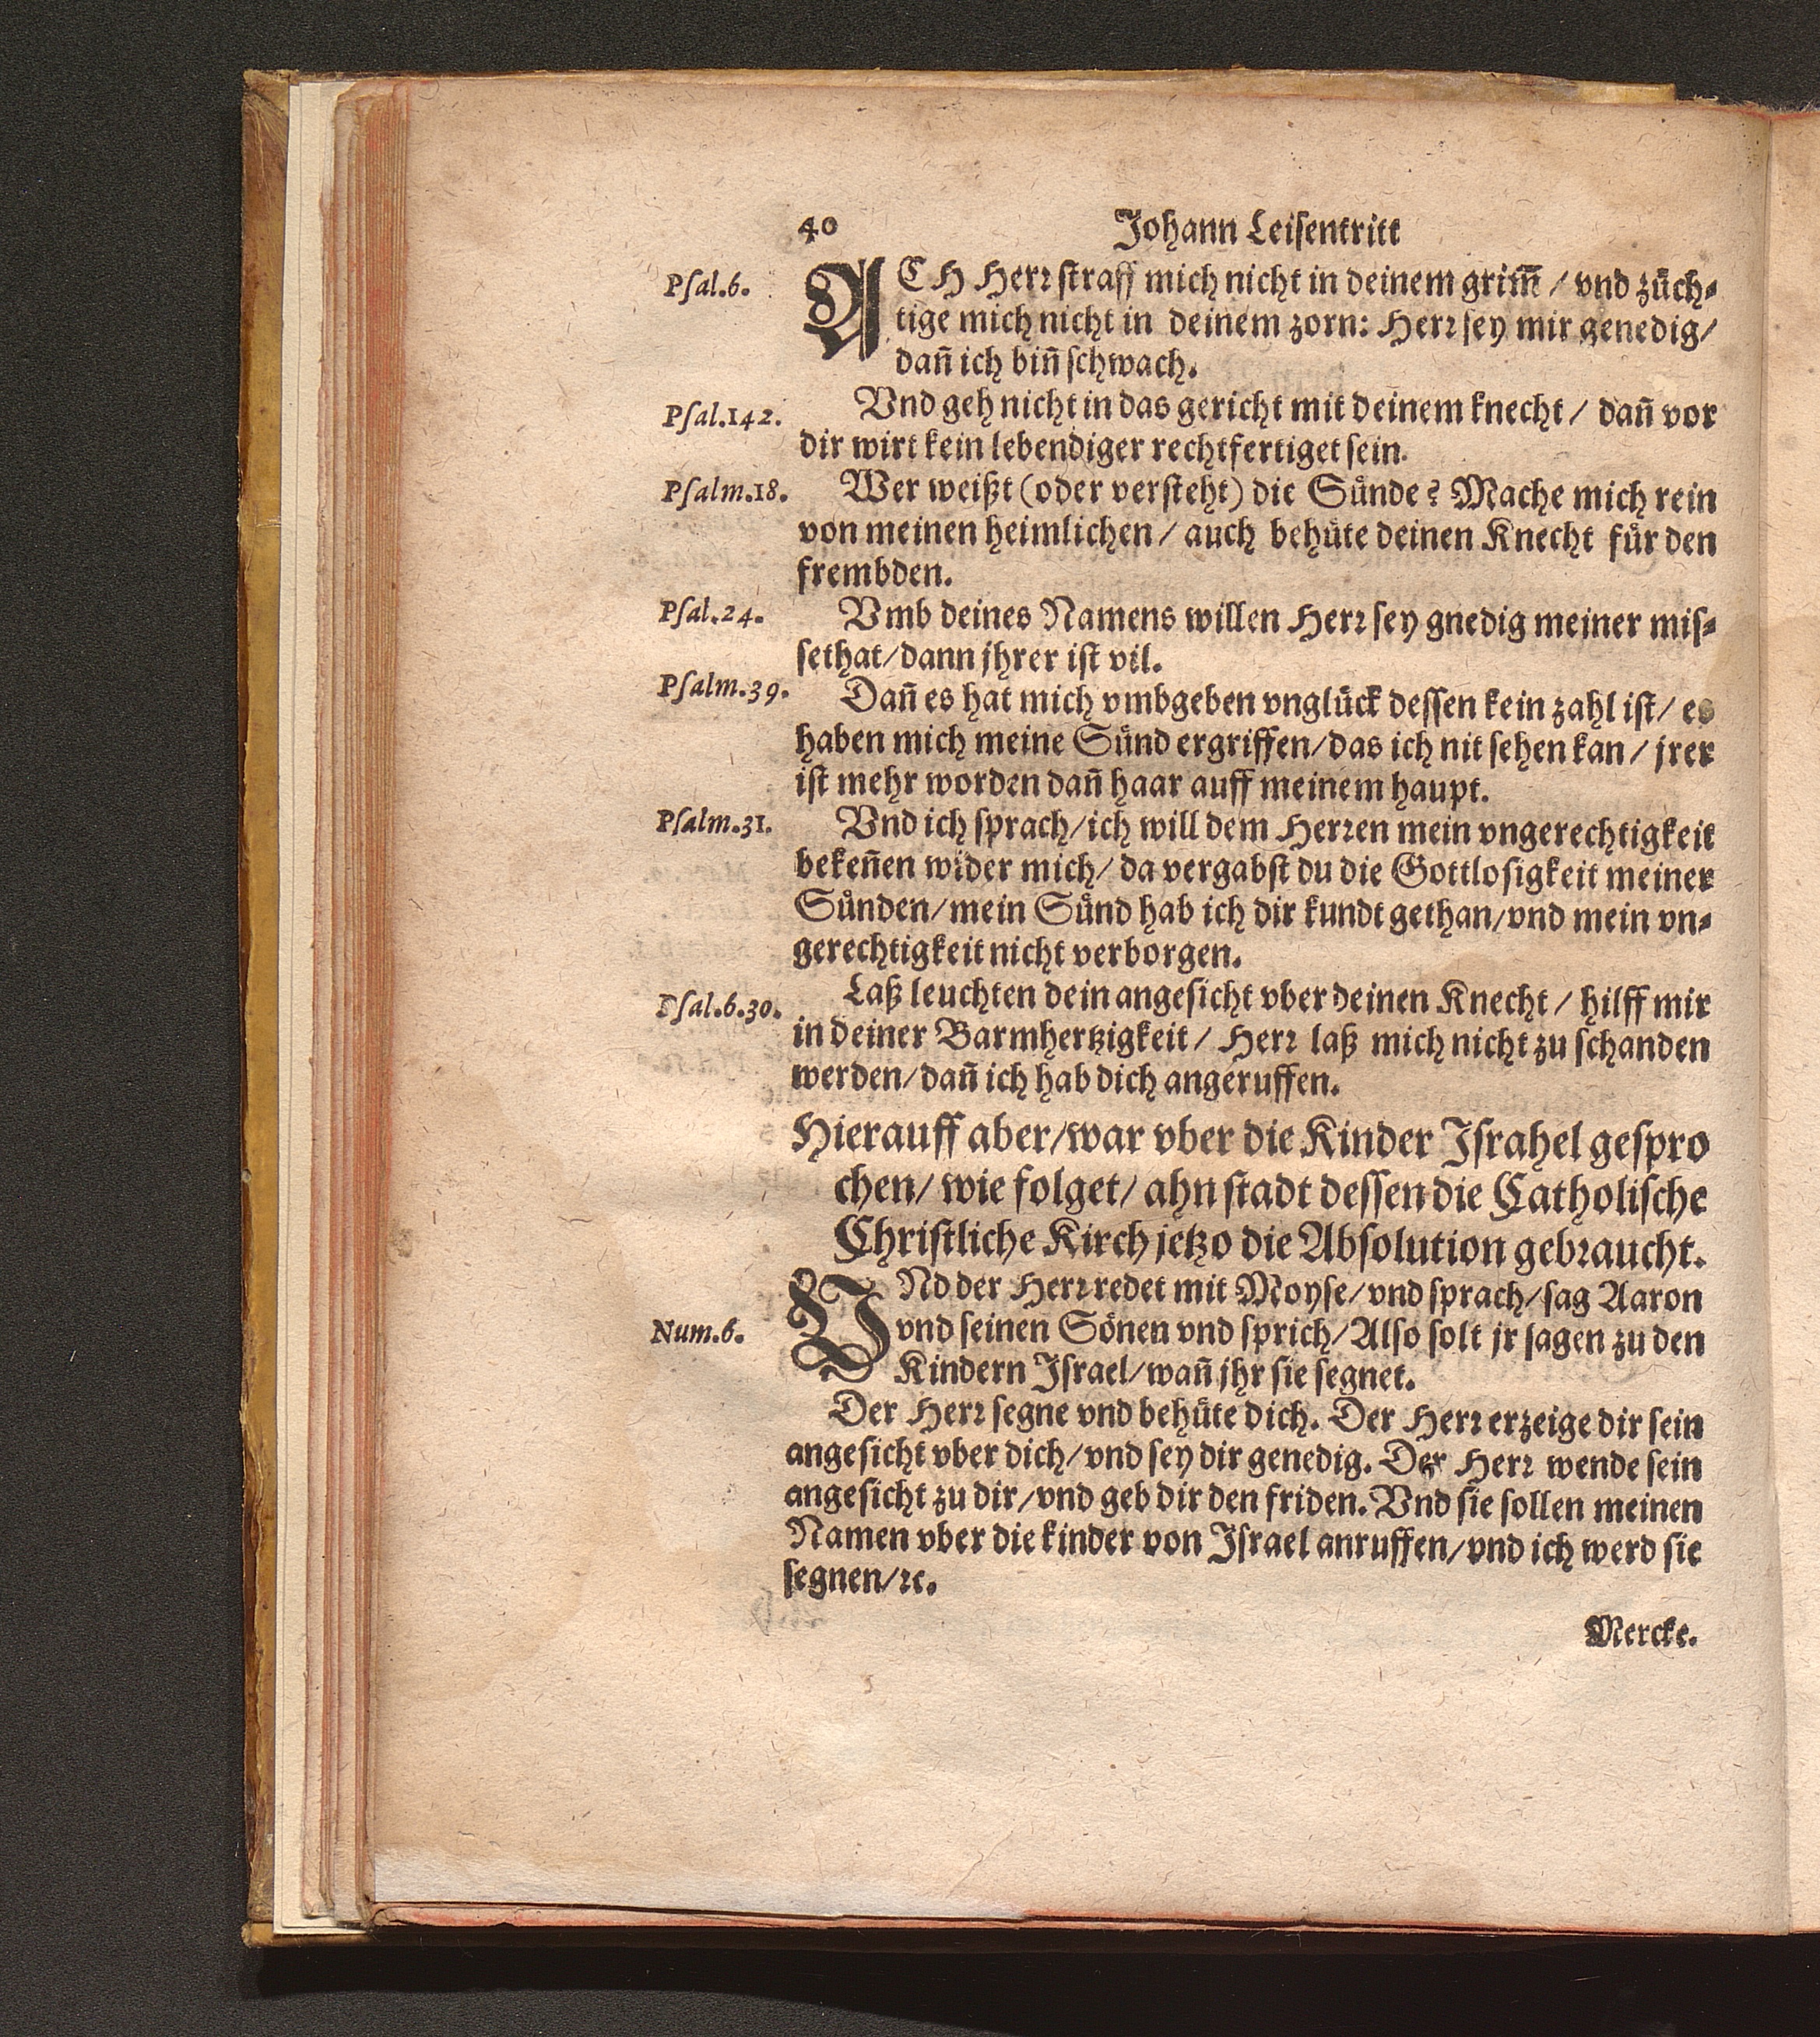 40 Johann Leisentritt
Psal.6.
ACH Herr straff mich nicht in deinem grim̃ / vnd züch⸗
tige mich nicht in deinem zorn: Herr sey mir genedig/
dañ ich biñ schwach.
Psal.142.
Vnd geh nicht in das gericht mit deinem knecht / dañ vor
dir wirt kein lebendiger rechtfertiget sein.
Psalm.18.
Wer weißt (oder versteht) die Sünde? Mache mich rein
von meinen heimlichen / auch behüte deinen Knecht für den
frembden.
Psal.24.
Vmb deines Namens willen Herr sey gnedig meiner mis⸗
sethat/dann jhrer ist vil.
Psalm.39.
Dañ es hat mich vmbgeben vnglück dessen kein zahl ist/ es
haben mich meine Sünd ergriffen/das ich nit sehen kan / jrer
ist mehr worden dañ haar auff meinem haupt.
Psalm.31.
Vnd ich sprach/ich will dem Herren mein vngerechtigkeit
bekeñen wider mich/ da vergabst du die Gottlosigkeit meiner
Sünden/mein Sünd hab ich dir kundt gethan/vnd mein vn⸗
gerechtigkeit nicht verborgen.
Psal.6.30.
Laß leuchten dein angesicht vber deinen Knecht / hilff mir
in deiner Barmhertzigkeit / Herr laß mich nicht zu schanden
werden/dañ ich hab dich angeruffen.
Hierauff aber/war vber die Kinder Israhel gespro
chen/ wie folget/ ahn stadt dessen die Catholische
Christliche Kirch jetzo die Absolution gebraucht.
VNd der Herr redet mit Moyse/vnd sprach/sag Aaron
Num.6.
vnd seinen Sönen vnd sprich/Also solt jr sagen zu den
Kindern Israel/wañ jhr sie segnet.
Der Herr segne vnd behüte dich. Der Herr erzeige dir sein
angesicht vber dich/vnd sey dir genedig. Der Herr wende sein
angesicht zu dir/vnd geb dir den friden. Vnd sie sollen meinen
Namen vber die kinder von Israel anruffen/vnd ich werd sie
segnen/ꝛc.
Mercke.